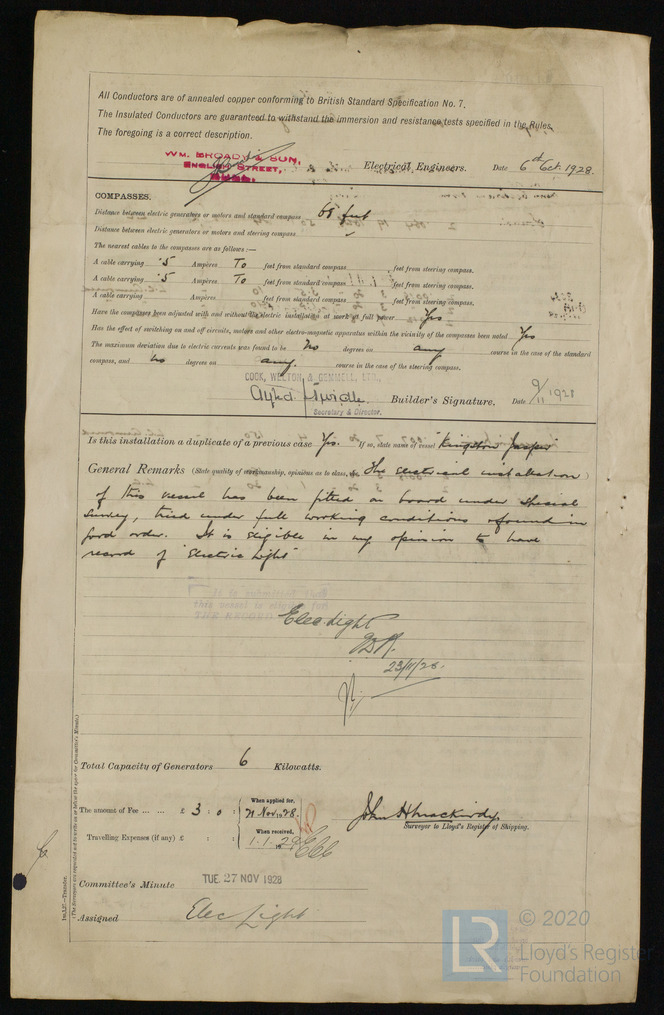 All Conductors are of annealed copper conforming to British Standard Specification No. 7.
The Insulated Conductors are guaranteed to withstand the immersion and resistance tests specified in the Rules.
The foregoing is a correct description.
WM. BROADY & SON,
ENGLISH STREET,
HULL.
Electrical Engineers. Date 6th Oct. 1928.
COMPASSES.
Distance between electric generators or motors and standard compass 68 feet
Distance between electric generators or motors and steering compass
The nearest cables to the compasses are as follows:—
A cable carrying .5 Ampères To feet from standard compass feet from steering compass.
A cable carrying .5 Ampères To feet from standard compass feet from steering compass.
A cable carrying Ampères feet from standard compass feet from steering compass.
Have the compasses been adjusted with and without the electric installation at work at full power Yes
Has the effect of switching on and off circuits, motors and other electro-magnetic apparatus within the vicinity of the compasses been noted Yes
The maximum deviation due to electric currents was found to be No degrees on any course in the case of the standard
compass, and no degrees on any course in the case of the steering compass.
COOK, WELTON & GEMMELL, LTD.,
Builder's Signature. Date 9/11 1928
Secretary & Director.
Is this installation a duplicate of a previous case Yes. If so, state name of vessel "Kingston Jasper"
General Remarks (State quality of workmanship, opinions as to class, &c. The electrical installation)
of this vessel has been fitted on board under special
survey, tried under full working conditions & found in
good order. It is eligible in my opinion to have
record of "Electric Light"
It is submitted that
this vessel is eligible for
THE RECORD
Elec. Light
23/11/28.
Total Capacity of Generators 6 Kilowatts.
The amount of Fee ... ... £ 3 : 0 :
When applied for,
21 Nov. 1928.
Travelling Expenses (if any) £ : :
When received,
1.1.29
Surveyor to Lloyd's Register of Shipping.
Committee's Minute TUE. 27 NOV 1928
Assigned Elec Light
(The Surveyors are requested not to write on or below the space for Committee's Minute.)
LR
© 2020
Lloyd's Register
Foundation